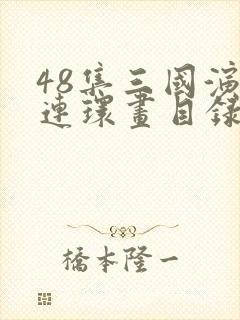 48集三國演
連環畫目錄
橋本隆一